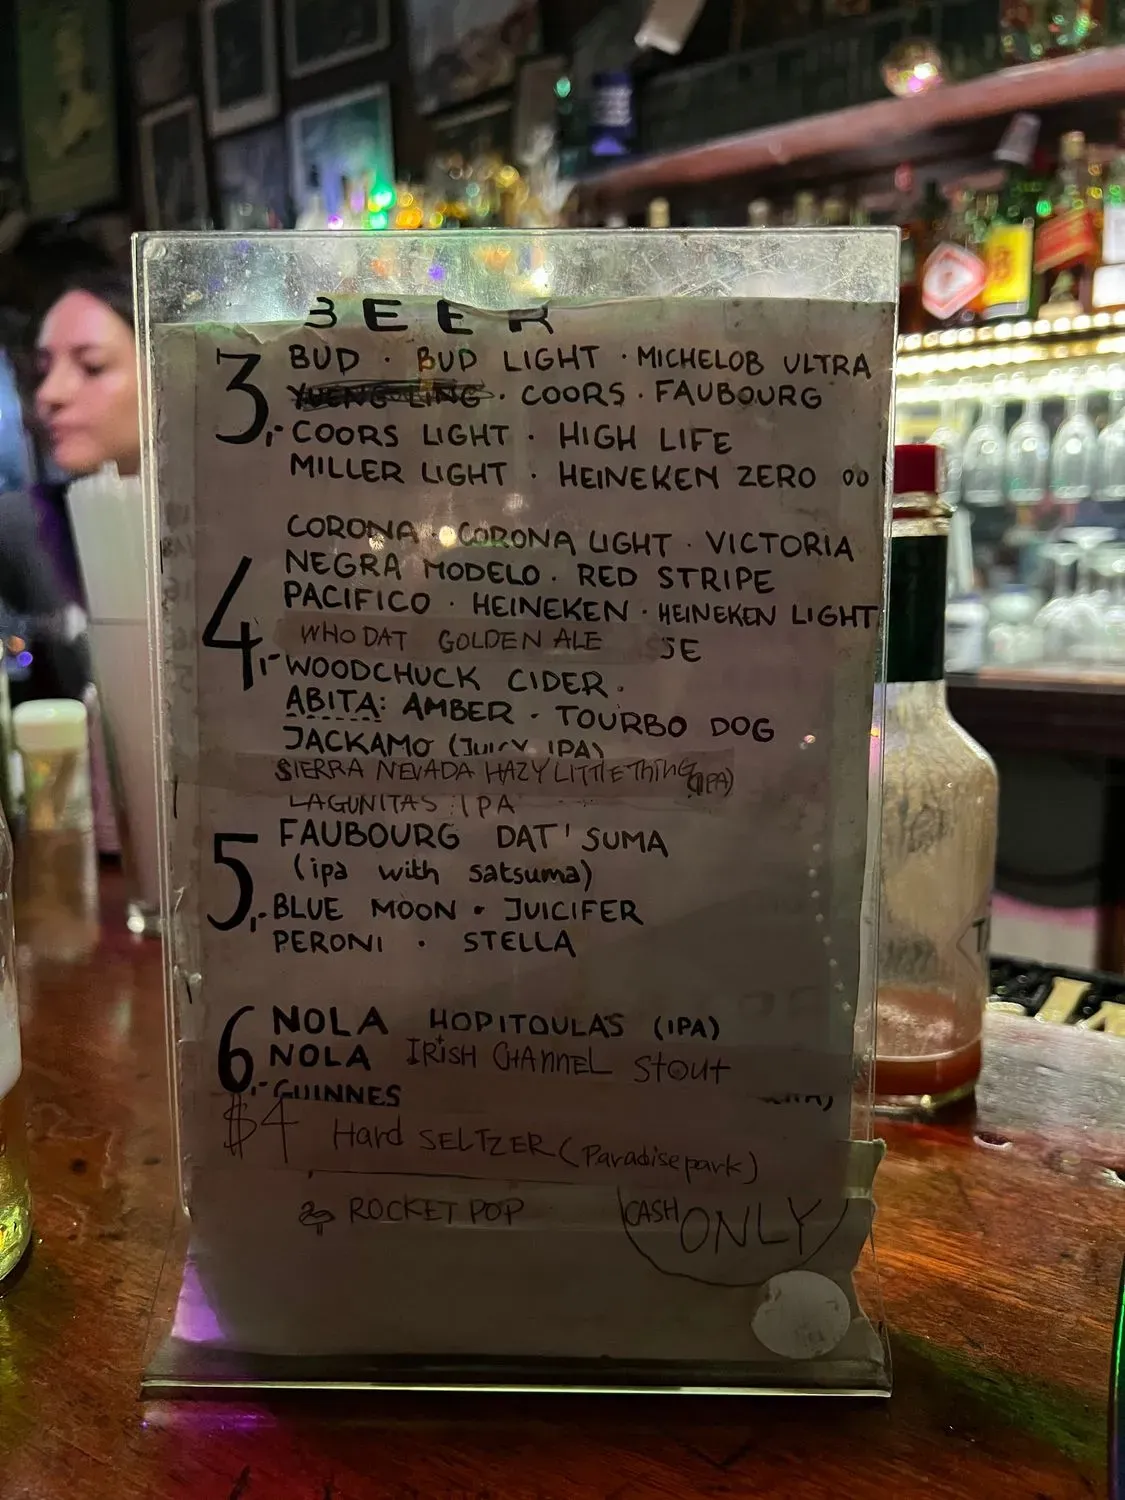 BEER
3,- BUD · BUD LIGHT · MICHELOB ULTRA
YUENG LING · COORS · FAUBOURG
COORS LIGHT · HIGH LIFE
MILLER LIGHT · HEINEKEN ZERO 00
CORONA · CORONA LIGHT · VICTORIA
NEGRA MODELO · RED STRIPE
4,- PACIFICO · HEINEKEN · HEINEKEN LIGHT
WHO DAT GOLDEN ALE SE
WOODCHUCK CIDER ·
ABITA: AMBER · TOURBO DOG
JACKAMO (JUICY IPA)
SIERRA NEVADA HAZY LITTLE THING (IPA)
LAGUNITAS IPA
5,- FAUBOURG DAT' SUMA
(ipa with satsuma)
BLUE MOON · JUICIFER
PERONI · STELLA
6,- NOLA HOPITOULAS (IPA)
NOLA IRISH CHANNEL Stout
GUINNES
$4 Hard SELTZER (Paradise park)
ROCKET POP
CASH ONLY